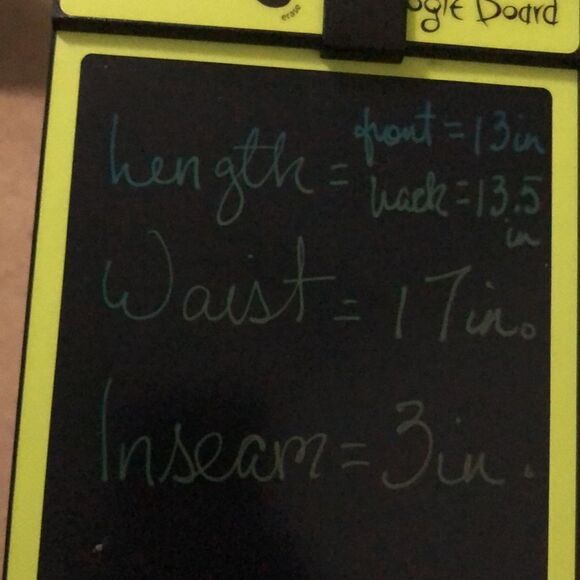 erase
Board
Length = front = 13 in
back = 13.5
in
Waist = 17 in.
Inseam = 3 in.